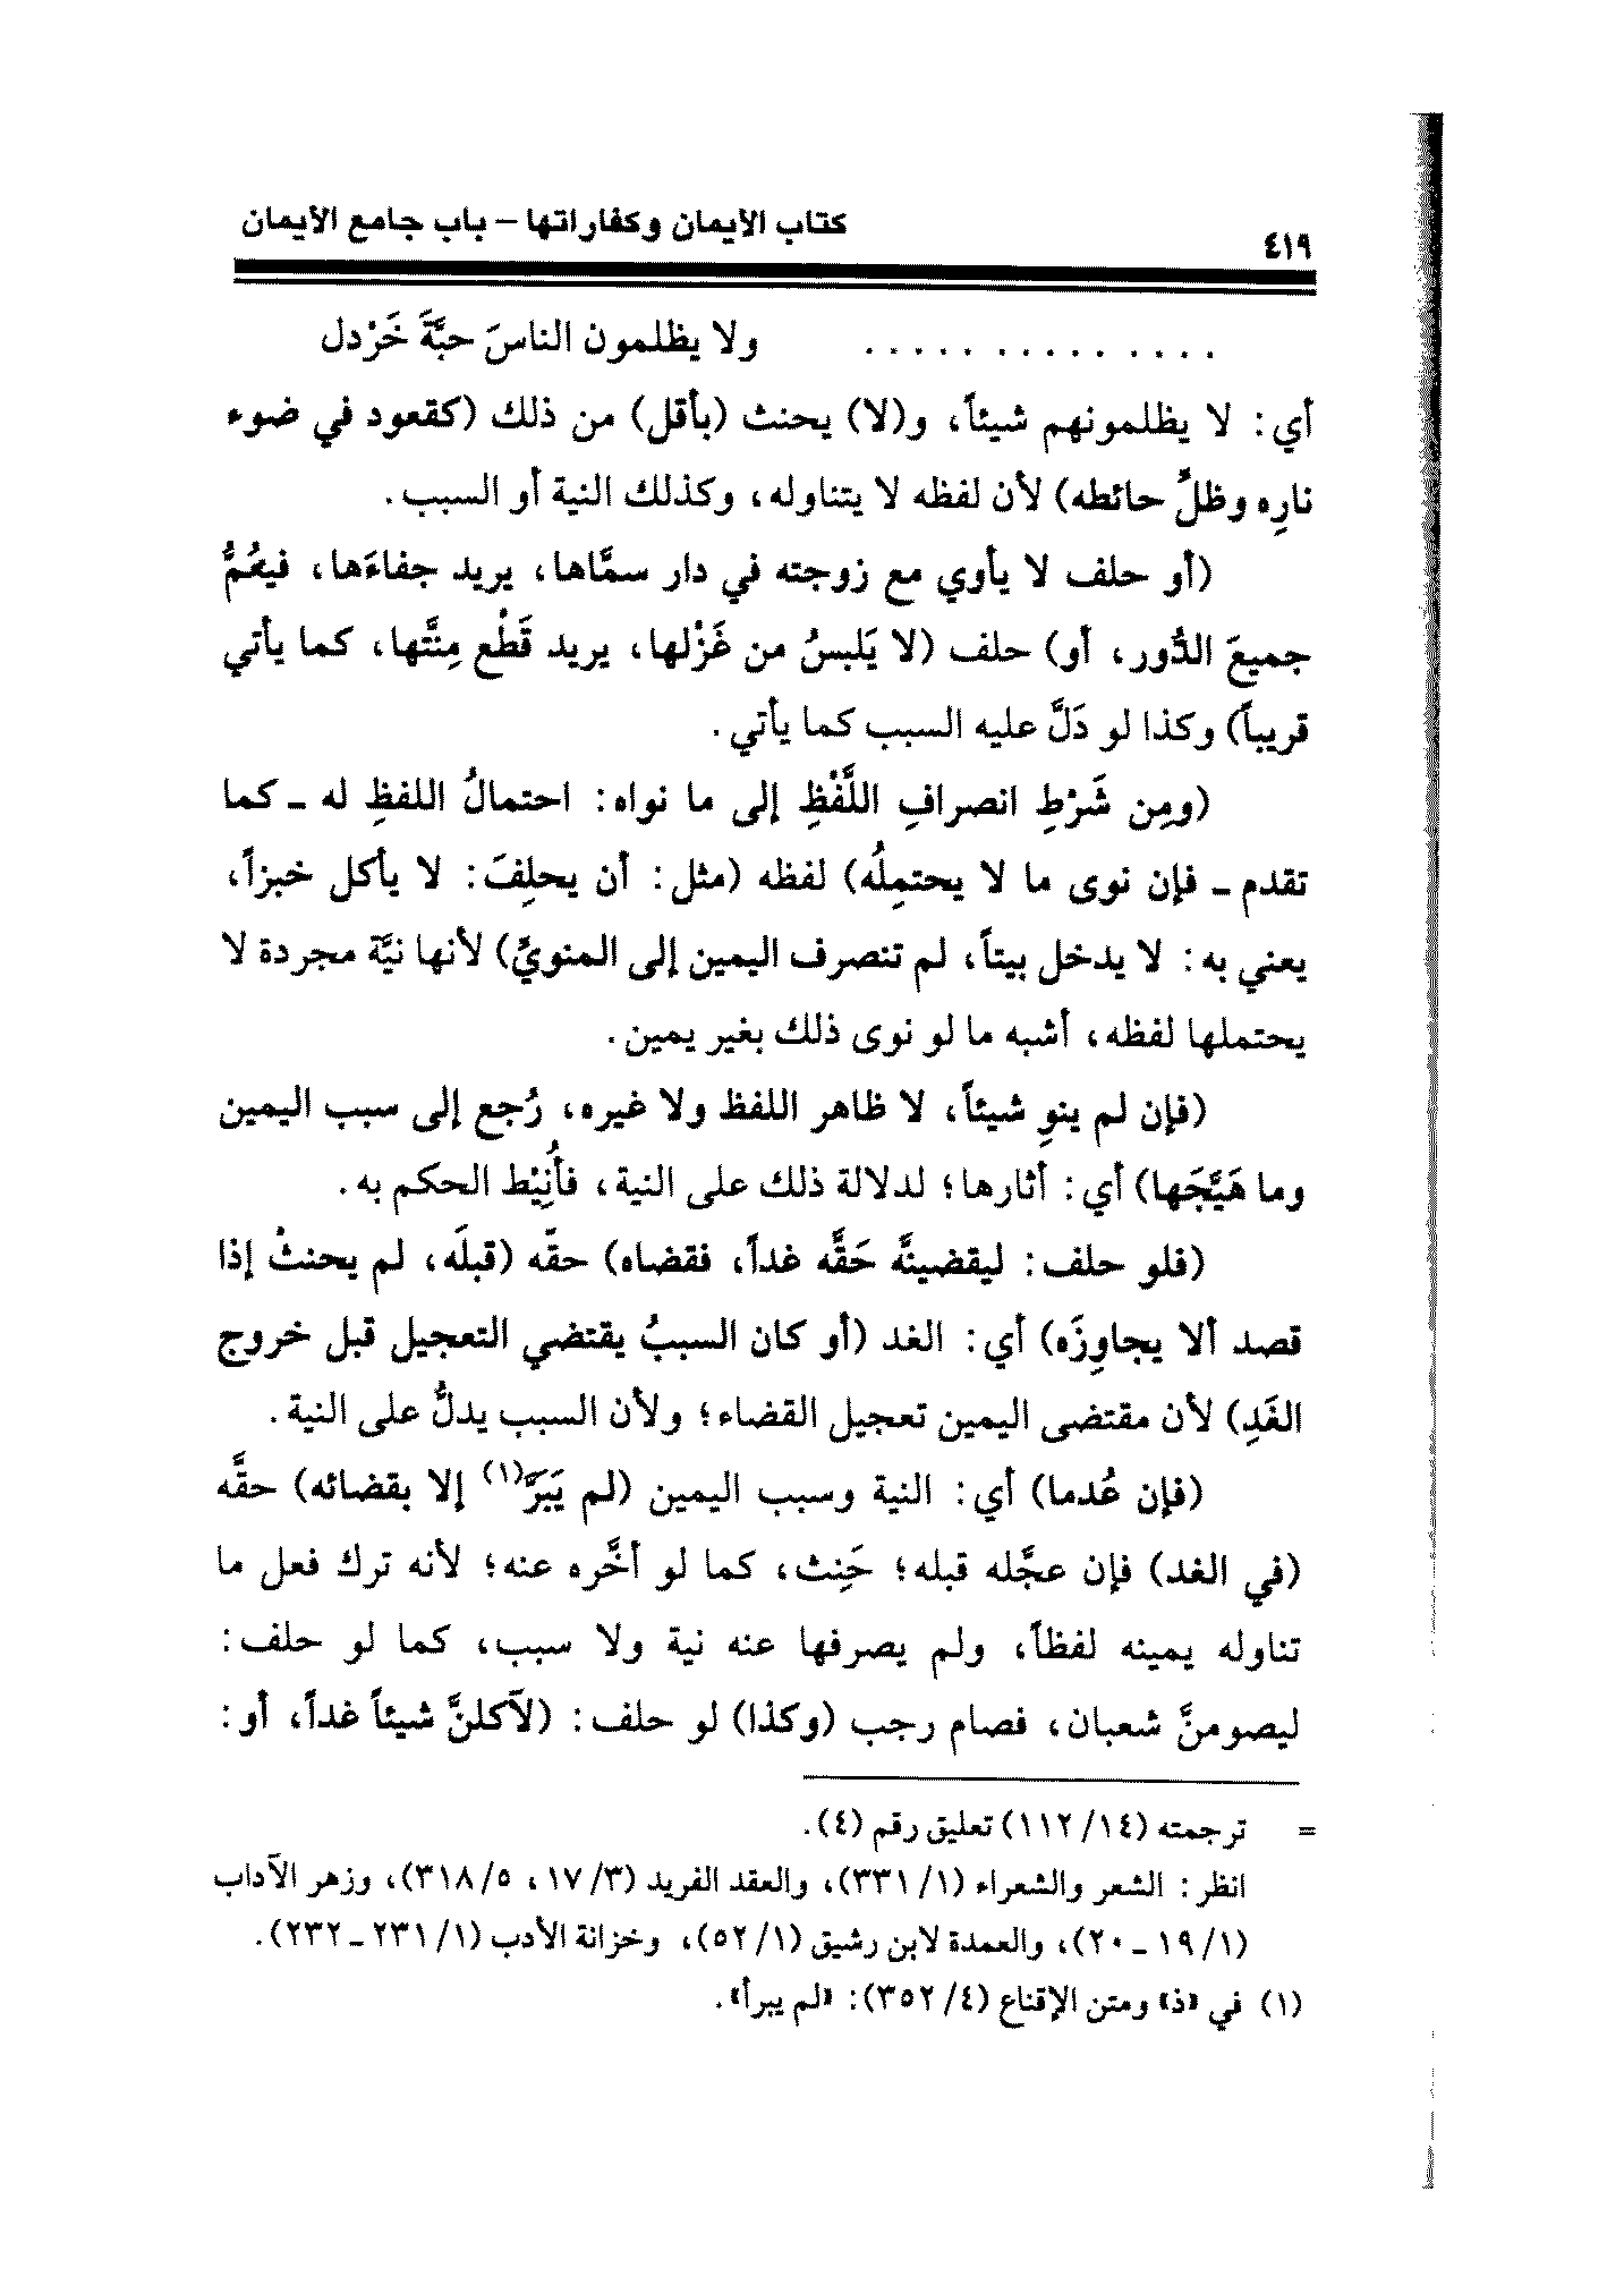 ٤١٩
كتاب الأيمان وكفاراتها – باب جامع الأيمان
. . . . . . . . . . . . . . ولا يظلمون الناسَ حبَّةَ خَرْدل
أي: لا يظلمونهم شيئاً، و(لا) يحنث (بأقل) من ذلك (كقعود في ضوء
نارِه وظلِّ حائطه) لأن لفظه لا يتناوله، وكذلك النية أو السبب.
(أو حلف لا يأوي مع زوجته في دار سمَّاها، يريد جفاءَها، فيعُمُّ
جميعَ الدُّور، أو) حلف (لا يَلبسُ من غَزْلها، يريد قَطْع مِنَّتها، كما يأتي
قريباً) وكذا لو دَلَّ عليه السبب كما يأتي.
(ومِن شَرْطِ انصرافِ اللَّفْظِ إلى ما نواه: احتمالُ اللفظِ له ـ كما
تقدم ـ فإن نوى ما لا يحتمِلُه) لفظه (مثل: أن يحلِفَ: لا يأكل خبزاً،
يعني به: لا يدخل بيتاً، لم تنصرف اليمين إلى المنويِّ) لأنها نيَّة مجردة لا
يحتملها لفظه، أشبه ما لو نوى ذلك بغير يمين.
(فإن لم ينوِ شيئاً، لا ظاهر اللفظ ولا غيره، رُجع إلى سبب اليمين
وما هَيَّجَها) أي: أثارها؛ لدلالة ذلك على النية، فأُنِيْط الحكم به.
(فلو حلف: ليقضينَّه حَقَّه غداً، فقضاه) حقَّه (قبلَه، لم يحنثْ إذا
قصد ألا يجاوِزَه) أي: الغد (أو كان السببُ يقتضي التعجيل قبل خروج
الغَدِ) لأن مقتضى اليمين تعجيل القضاء؛ ولأن السبب يدلُّ على النية.
(فإن عُدما) أي: النية وسبب اليمين (لم يَبَرَّ(١) إلا بقضائه) حقَّه
(في الغد) فإن عجَّله قبله؛ حَنِث، كما لو أخَّره عنه؛ لأنه ترك فعل ما
تناوله يمينه لفظاً، ولم يصرفها عنه نية ولا سبب، كما لو حلف:
ليصومنَّ شعبان، فصام رجب (وكذا) لو حلف: (لآكلنَّ شيئاً غداً، أو:
= ترجمته (١٤/ ١١٢) تعليق رقم (٤).
انظر: الشعر والشعراء (١/ ٣٣١)، والعقد الفريد (٣/ ١٧، ٥/ ٣١٨)، وزهر الآداب
(١/ ١٩ ـ ٢٠)، والعمدة لابن رشيق (١/ ٥٢)، وخزانة الأدب (١/ ٢٣١ ـ ٢٣٢).
(١) في «ذ» ومتن الإقناع (٤/ ٣٥٢): «لم يبرأ».